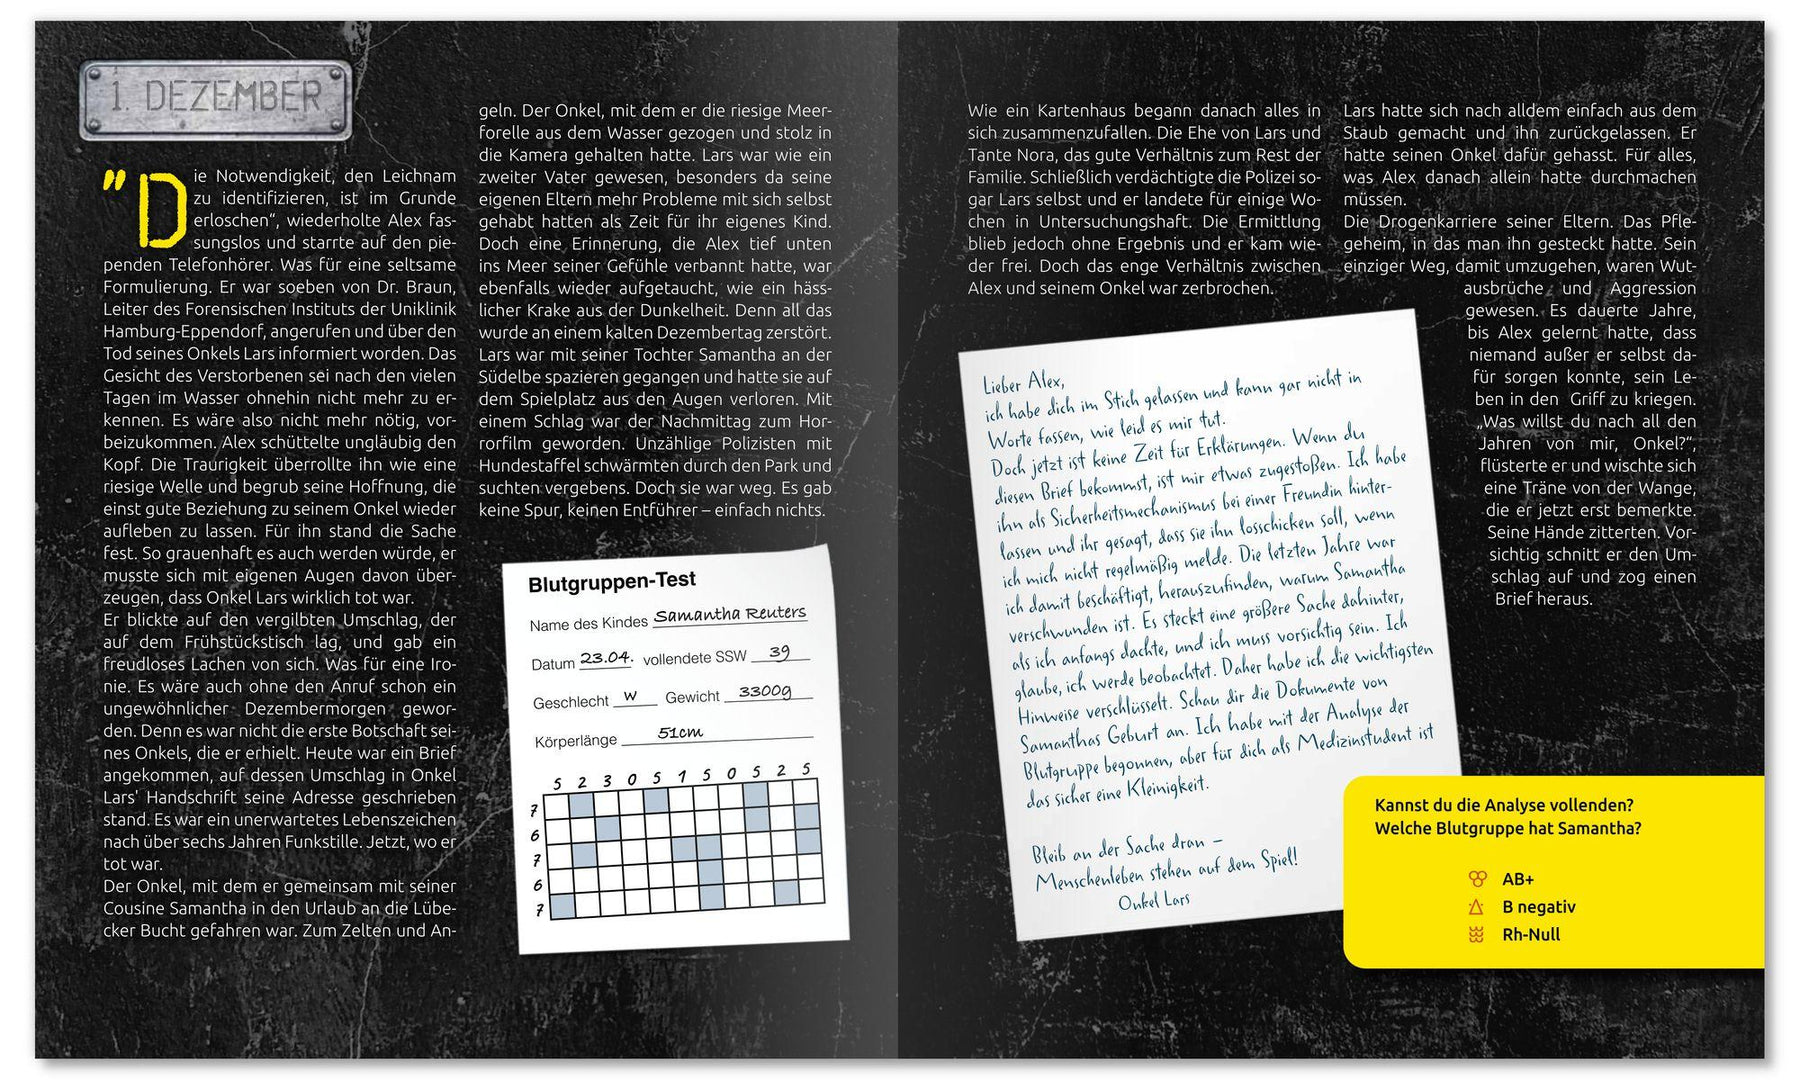 1. DEZEMBER
"Die Notwendigkeit, den Leichnam
zu identifizieren, ist im Grunde
erloschen“, wiederholte Alex fas-
sungslos und starrte auf den pie-
penden Telefonhörer. Was für eine seltsame
Formulierung. Er war soeben von Dr. Braun,
Leiter des Forensischen Instituts der Uniklinik
Hamburg-Eppendorf, angerufen und über den
Tod seines Onkels Lars informiert worden. Das
Gesicht des Verstorbenen sei nach den vielen
Tagen im Wasser ohnehin nicht mehr zu er-
kennen. Es wäre also nicht mehr nötig, vor-
beizukommen. Alex schüttelte ungläubig den
Kopf. Die Traurigkeit überrollte ihn wie eine
riesige Welle und begrub seine Hoffnung, die
einst gute Beziehung zu seinem Onkel wieder
aufleben zu lassen. Für ihn stand die Sache
fest. So grauenhaft es auch werden würde, er
musste sich mit eigenen Augen davon über-
zeugen, dass Onkel Lars wirklich tot war.
Er blickte auf den vergilbten Umschlag, der
auf dem Frühstückstisch lag, und gab ein
freudloses Lachen von sich. Was für eine Iro-
nie. Es wäre auch ohne den Anruf schon ein
ungewöhnlicher Dezembermorgen gewor-
den. Denn es war nicht die erste Botschaft sei-
nes Onkels, die er erhielt. Heute war ein Brief
angekommen, auf dessen Umschlag in Onkel
Lars' Handschrift seine Adresse geschrieben
stand. Es war ein unerwartetes Lebenszeichen
nach über sechs Jahren Funkstille. Jetzt, wo er
tot war.
Der Onkel, mit dem er gemeinsam mit seiner
Cousine Samantha in den Urlaub an die Lübe-
cker Bucht gefahren war. Zum Zelten und An-
geln. Der Onkel, mit dem er die riesige Meer-
forelle aus dem Wasser gezogen und stolz in
die Kamera gehalten hatte. Lars war wie ein
zweiter Vater gewesen, besonders da seine
eigenen Eltern mehr Probleme mit sich selbst
gehabt hatten als Zeit für ihr eigenes Kind.
Doch eine Erinnerung, die Alex tief unten
ins Meer seiner Gefühle verbannt hatte, war
ebenfalls wieder aufgetaucht, wie ein häss-
licher Krake aus der Dunkelheit. Denn all das
wurde an einem kalten Dezembertag zerstört.
Lars war mit seiner Tochter Samantha an der
Südelbe spazieren gegangen und hatte sie auf
dem Spielplatz aus den Augen verloren. Mit
einem Schlag war der Nachmittag zum Hor-
rorfilm geworden. Unzählige Polizisten mit
Hundestaffel schwärmten durch den Park und
suchten vergebens. Doch sie war weg. Es gab
keine Spur, keinen Entführer – einfach nichts.
Blutgruppen-Test
Name des Kindes Samantha Reuters
Datum 23.04. vollendete SSW 39
Geschlecht W Gewicht 3300g
Körperlänge 51cm
5 2 3 0 5 1 5 0 5 2 5
7
6
7
6
7
Wie ein Kartenhaus begann danach alles in
sich zusammenzufallen. Die Ehe von Lars und
Tante Nora, das gute Verhältnis zum Rest der
Familie. Schließlich verdächtigte die Polizei so-
gar Lars selbst und er landete für einige Wo-
chen in Untersuchungshaft. Die Ermittlung
blieb jedoch ohne Ergebnis und er kam wie-
der frei. Doch das enge Verhältnis zwischen
Alex und seinem Onkel war zerbrochen.
Lars hatte sich nach alldem einfach aus dem
Staub gemacht und ihn zurückgelassen. Er
hatte seinen Onkel dafür gehasst. Für alles,
was Alex danach allein hatte durchmachen
müssen.
Die Drogenkarriere seiner Eltern. Das Pfle-
geheim, in das man ihn gesteckt hatte. Sein
einziger Weg, damit umzugehen, waren Wut-
ausbrüche und Aggression
gewesen. Es dauerte Jahre,
bis Alex gelernt hatte, dass
niemand außer er selbst da-
für sorgen konnte, sein Le-
ben in den Griff zu kriegen.
„Was willst du nach all den
Jahren von mir, Onkel?“,
flüsterte er und wischte sich
eine Träne von der Wange,
die er jetzt erst bemerkte.
Seine Hände zitterten. Vor-
sichtig schnitt er den Um-
schlag auf und zog einen
Brief heraus.
Lieber Alex,
ich habe dich im Stich gelassen und kann gar nicht in
Worte fassen, wie leid es mir tut.
Doch jetzt ist keine Zeit für Erklärungen. Wenn du
diesen Brief bekommst, ist mir etwas zugestoßen. Ich habe
ihn als Sicherheitsmechanismus bei einer Freundin hinter-
lassen und ihr gesagt, dass sie ihn losschicken soll, wenn
ich mich nicht regelmäßig melde. Die letzten Jahre war
ich damit beschäftigt, herauszufinden, warum Samantha
verschwunden ist. Es steckt eine größere Sache dahinter,
als ich anfangs dachte, und ich muss vorsichtig sein. Ich
glaube, ich werde beobachtet. Daher habe ich die wichtigsten
Hinweise verschlüsselt. Schau dir die Dokumente von
Samanthas Geburt an. Ich habe mit der Analyse der
Blutgruppe begonnen, aber für dich als Medizinstudent ist
das sicher eine Kleinigkeit.
Bleib an der Sache dran –
Menschenleben stehen auf dem Spiel!
Onkel Lars
Kannst du die Analyse vollenden?
Welche Blutgruppe hat Samantha?
AB+
B negativ
Rh-Null